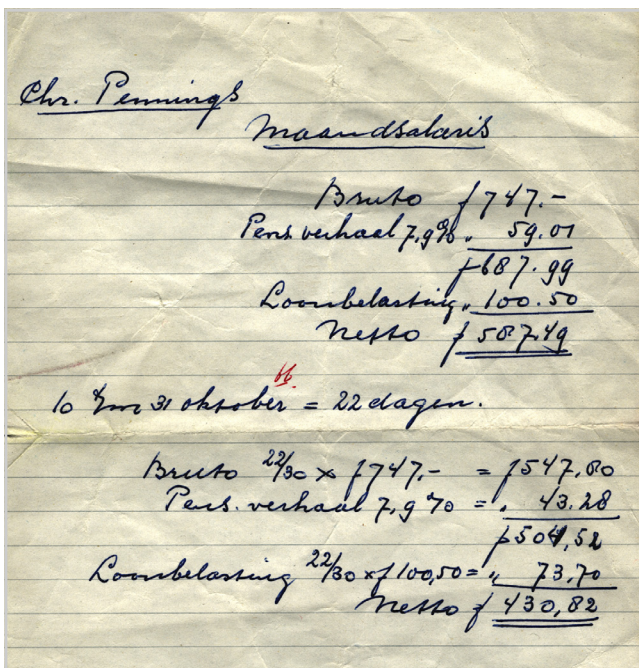 Chr. Pennings
Maandsalaris
Bruto f 747.-
Pens. verhaal 7,9% „ 59.01
f 687.99
Loonbelasting „ 100.50
Netto f 587.49
66.
10 t/m 31 oktober = 22 dagen.
Bruto 22/30 x f 747,- = f 547,80
Pens. verhaal 7,9% = „ 43.28
f 504,52
Loonbelasting 22/30 x f 100,50 = „ 73,70
Netto f 430,82